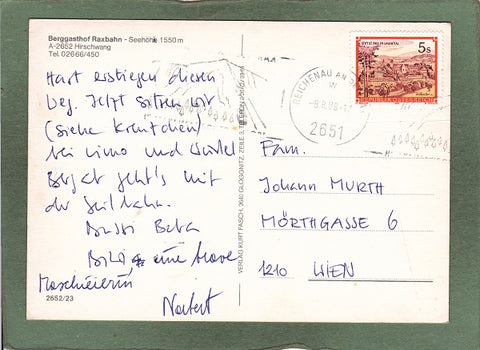 Berggasthof Raxbahn - Seehöhe 1550m
A-2652 Hirschwang
Tel. 02666/450
Hart erstiegen diesen
Weg. Jetzt sitzen wir
(siehe Kreutchen)
bei und Würstel
Bergab geht's mit
der Seilbahn.
Bussi
eine brave
Marschiererin
Norbert
2652/23
VERLAG KURT FASCH, 2640 GLOGGNITZ, ZEILE 3, TELEFON
5s
REPUBLIK ÖSTERREICH
REICHENAU AN
2651
Fam.
Johann MURTH
MÖRTHGASSE 6
1210 WIEN